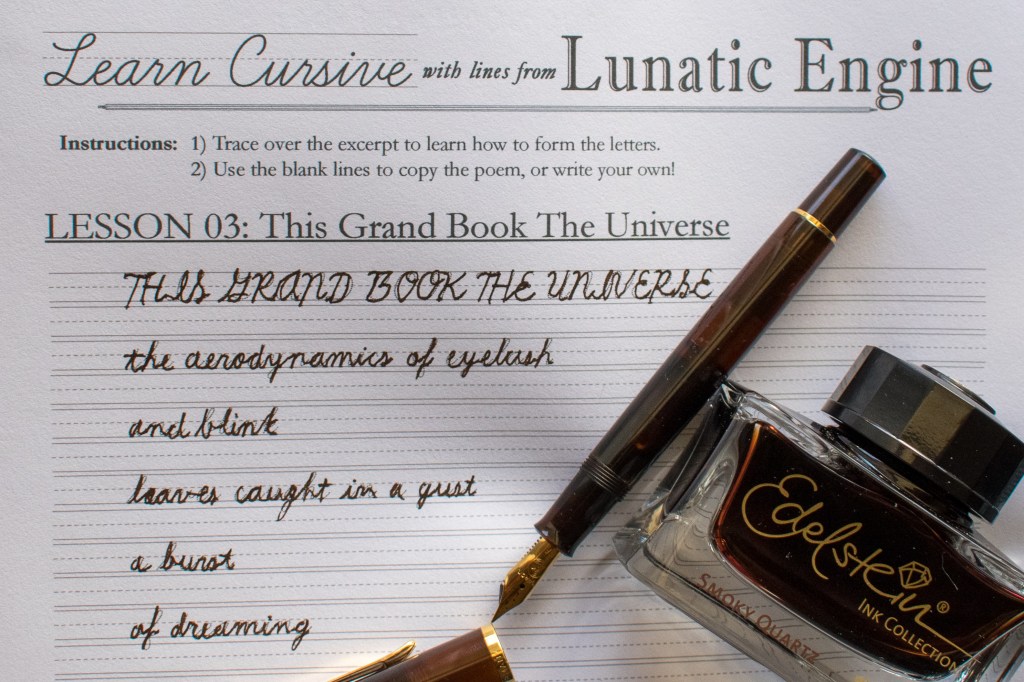 Learn Cursive with lines from Lunatic Engine
Instructions: 1) Trace over the excerpt to learn how to form the letters.
2) Use the blank lines to copy the poem, or write your own!
LESSON 03: This Grand Book The Universe
THIS GRAND BOOK THE UNIVERSE
the aerodynamics of eyelash
and blink
leaves caught in a gust
a burst
of dreaming
Edelstein®
INK COLLECTION
SMOKY QUARTZ